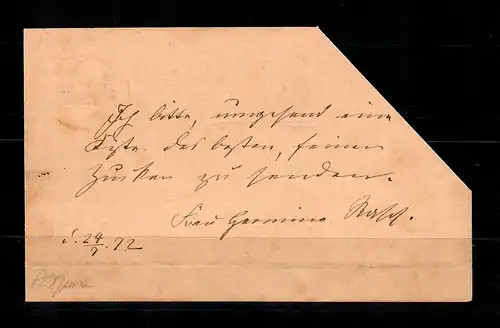 Ich bitte, umgehend eine
Kiste des besten, feinen
Zucker zu senden.
Frau Hermine Rasch.
d. 24/9. 72